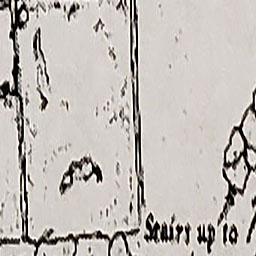 Stairs up to